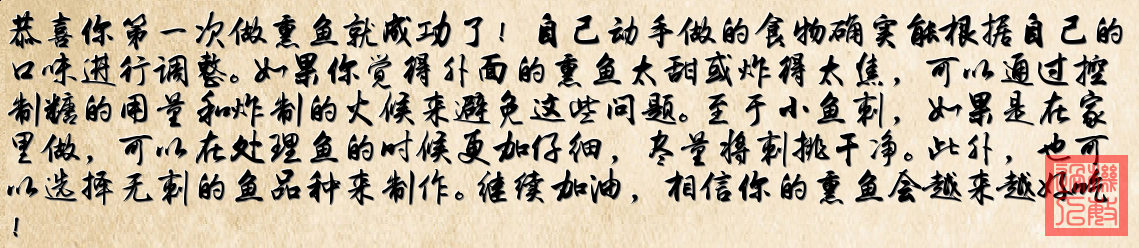 恭喜你第一次做熏鱼就成功了！自己动手做的食物确实能根据自己的
口味进行调整。如果你觉得外面的熏鱼太甜或炸得太焦，可以通过控
制糖的用量和炸制的火候来避免这些问题。至于小鱼刺，如果是在家
里做，可以在处理鱼的时候更加仔细，尽量将刺挑干净。此外，也可
以选择无刺的鱼品种来制作。继续加油，相信你的熏鱼会越来越好吃
！